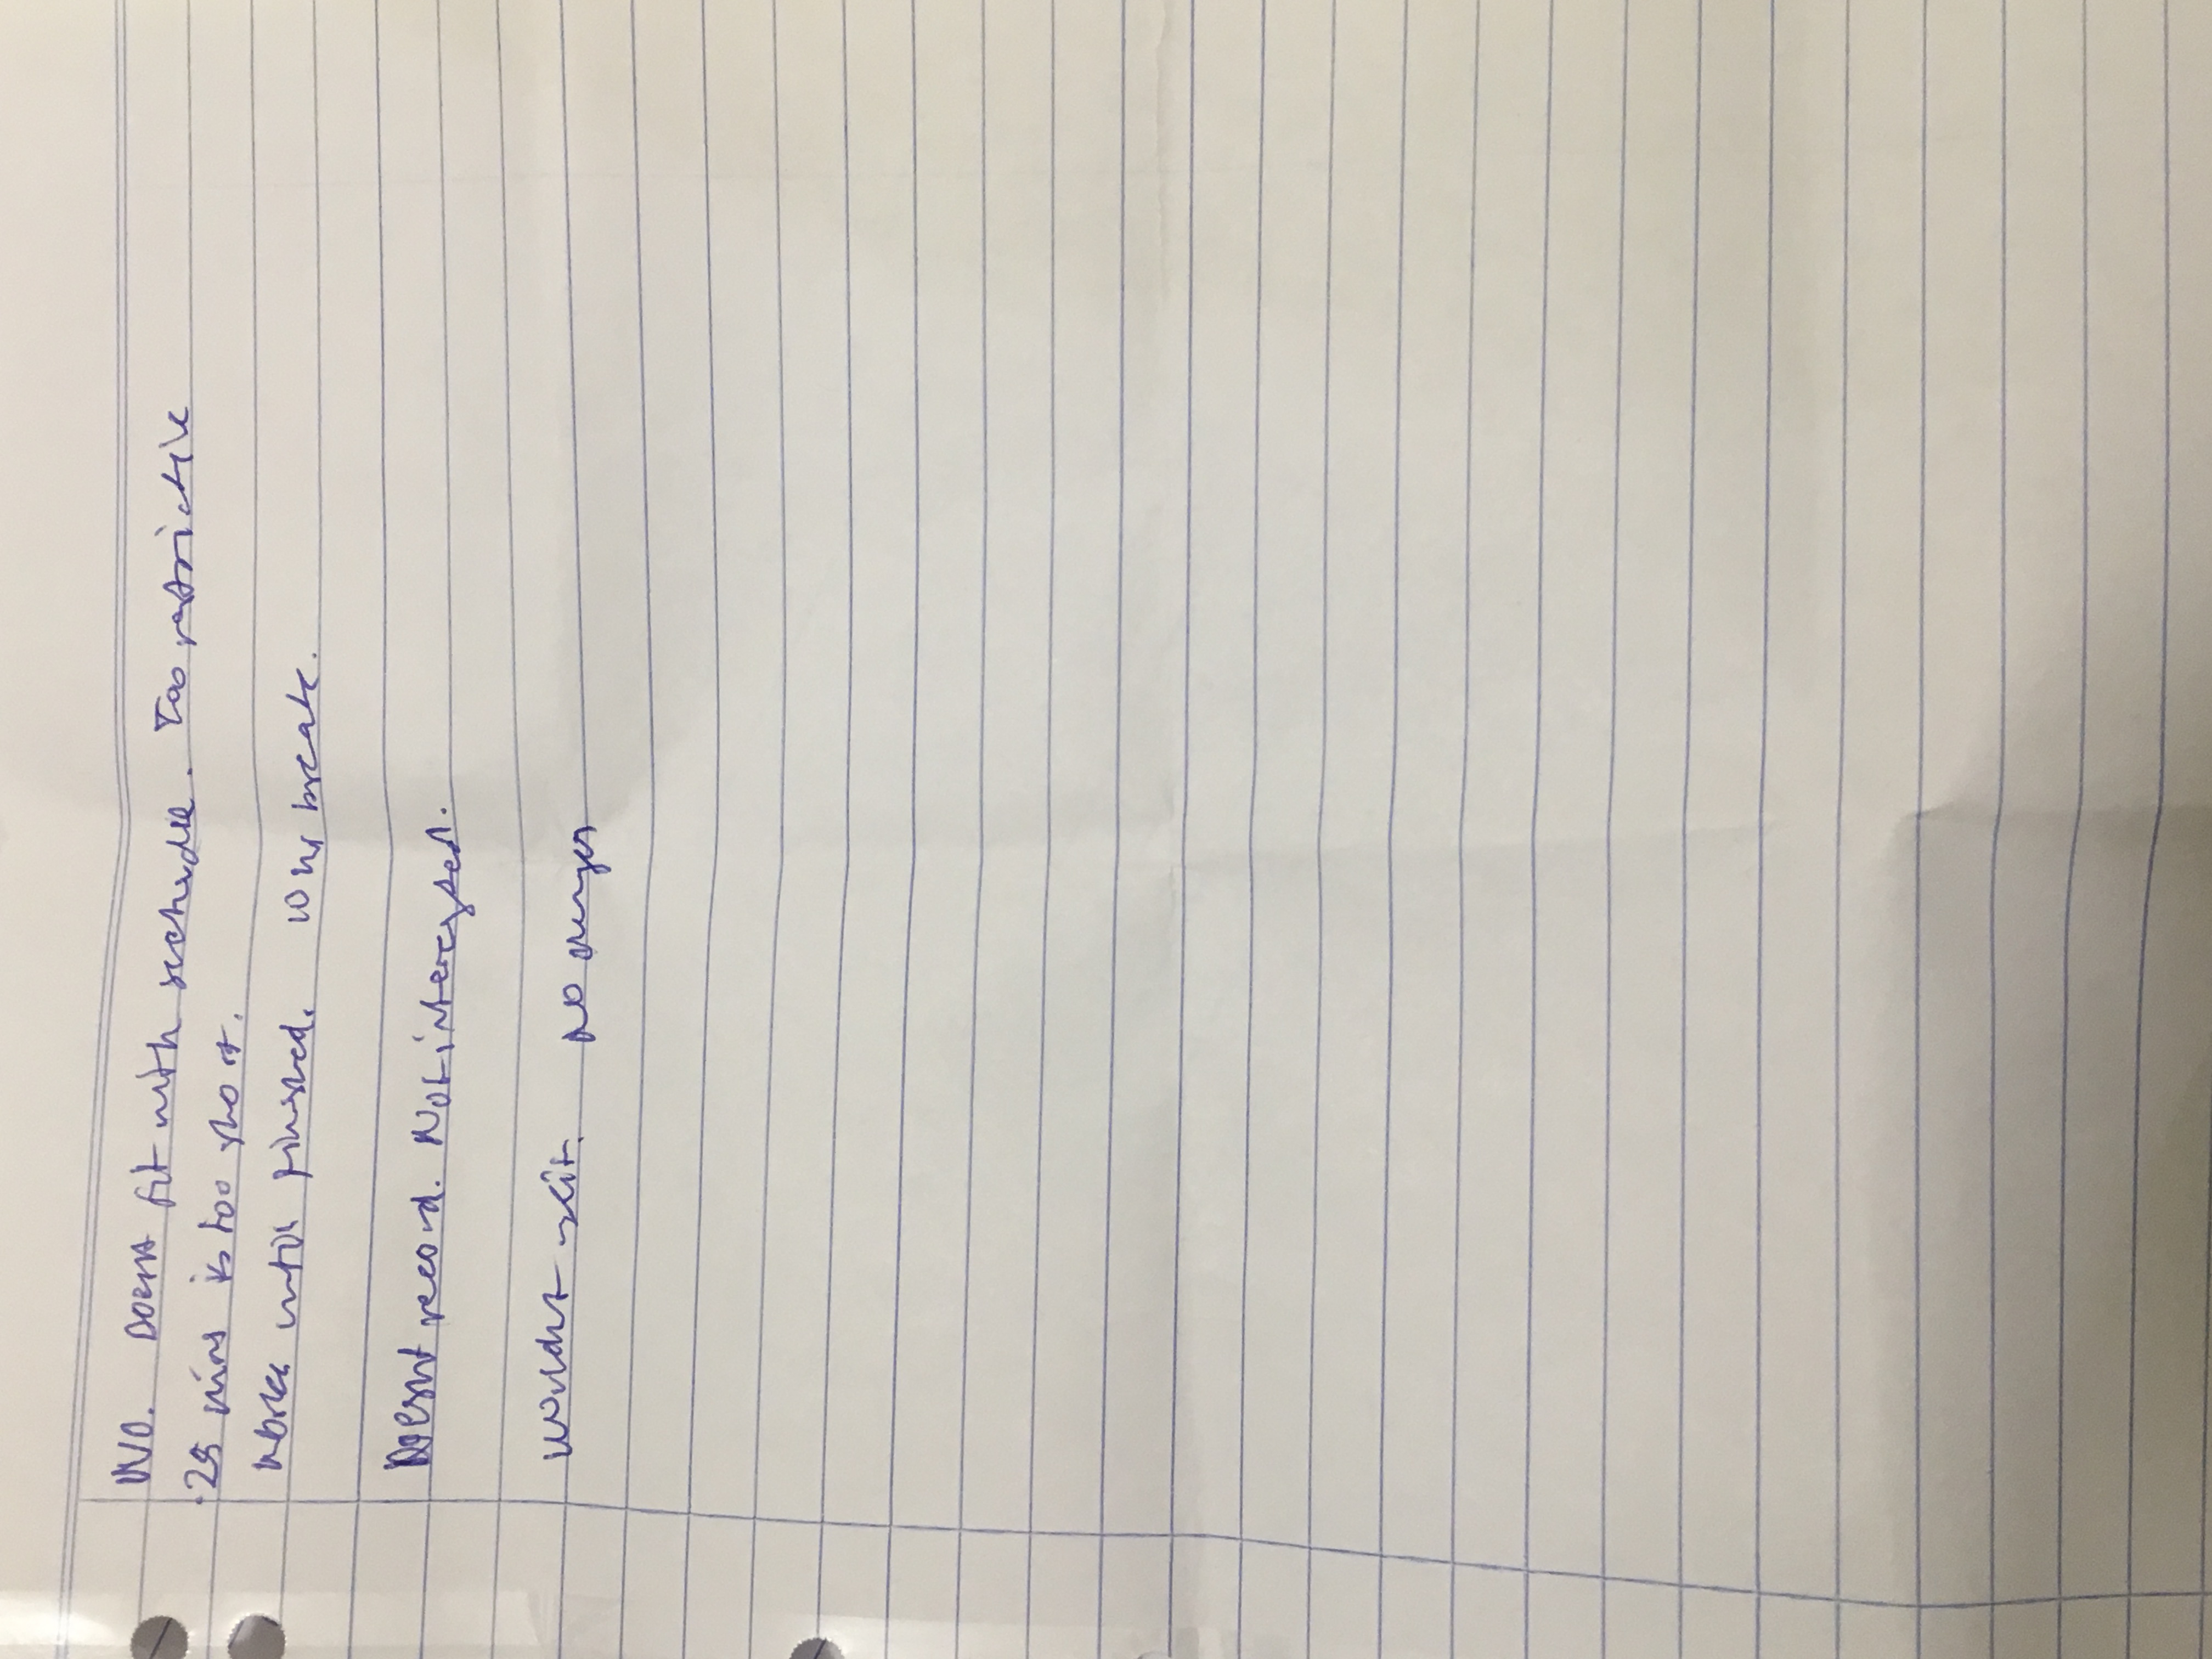 NO. Doesnt fit with schedule. Too restrictive
25 mins is too short.
Works until finished. 10 min break.
Doesnt record. Not interested.
Wouldnt use it. No changes